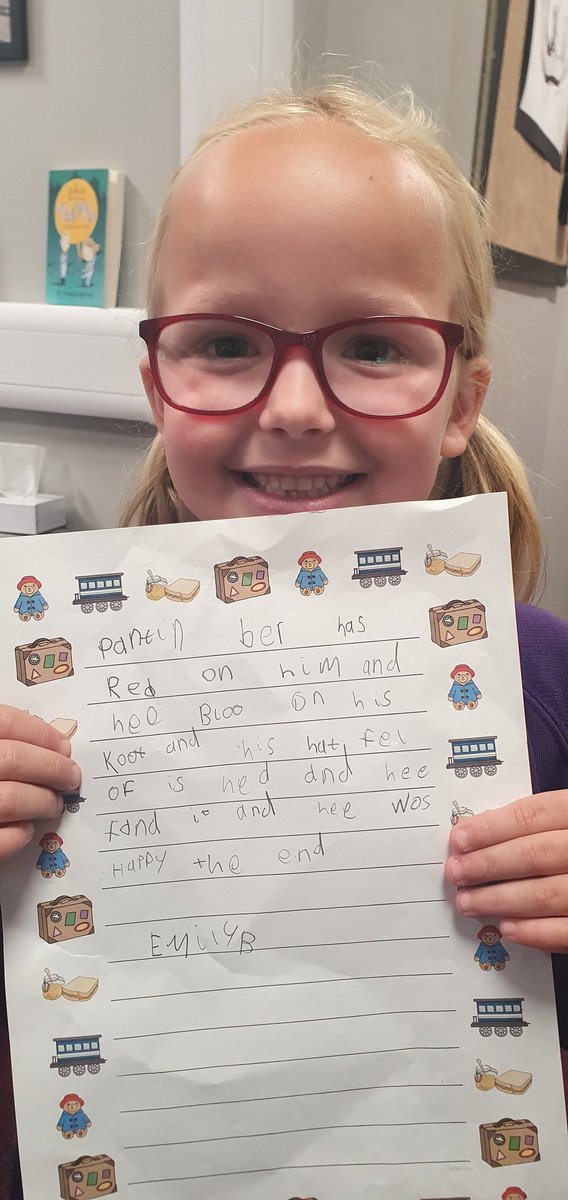 Pantin ber has
Red on him and
hee Bloo on his
Koot and his hat fel
oF is hed and hee
fand it and hee wos
Happy the end
EmillyB